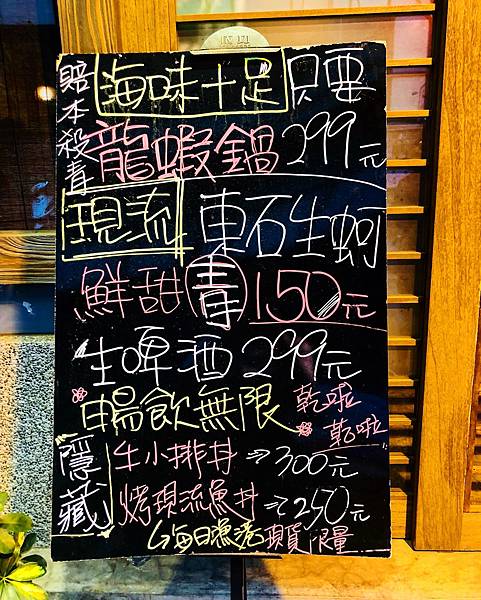 賠本殺青
海味十足 只要
龍蝦鍋 299元
現流 東石生蚵
鮮甜 青 150元
生啤酒 299元
暢飲無限 乾啦
乾啦
隱藏
牛小排丼 → 300元
烤現流魚丼 → 250元
↳每日漁港現貨限量